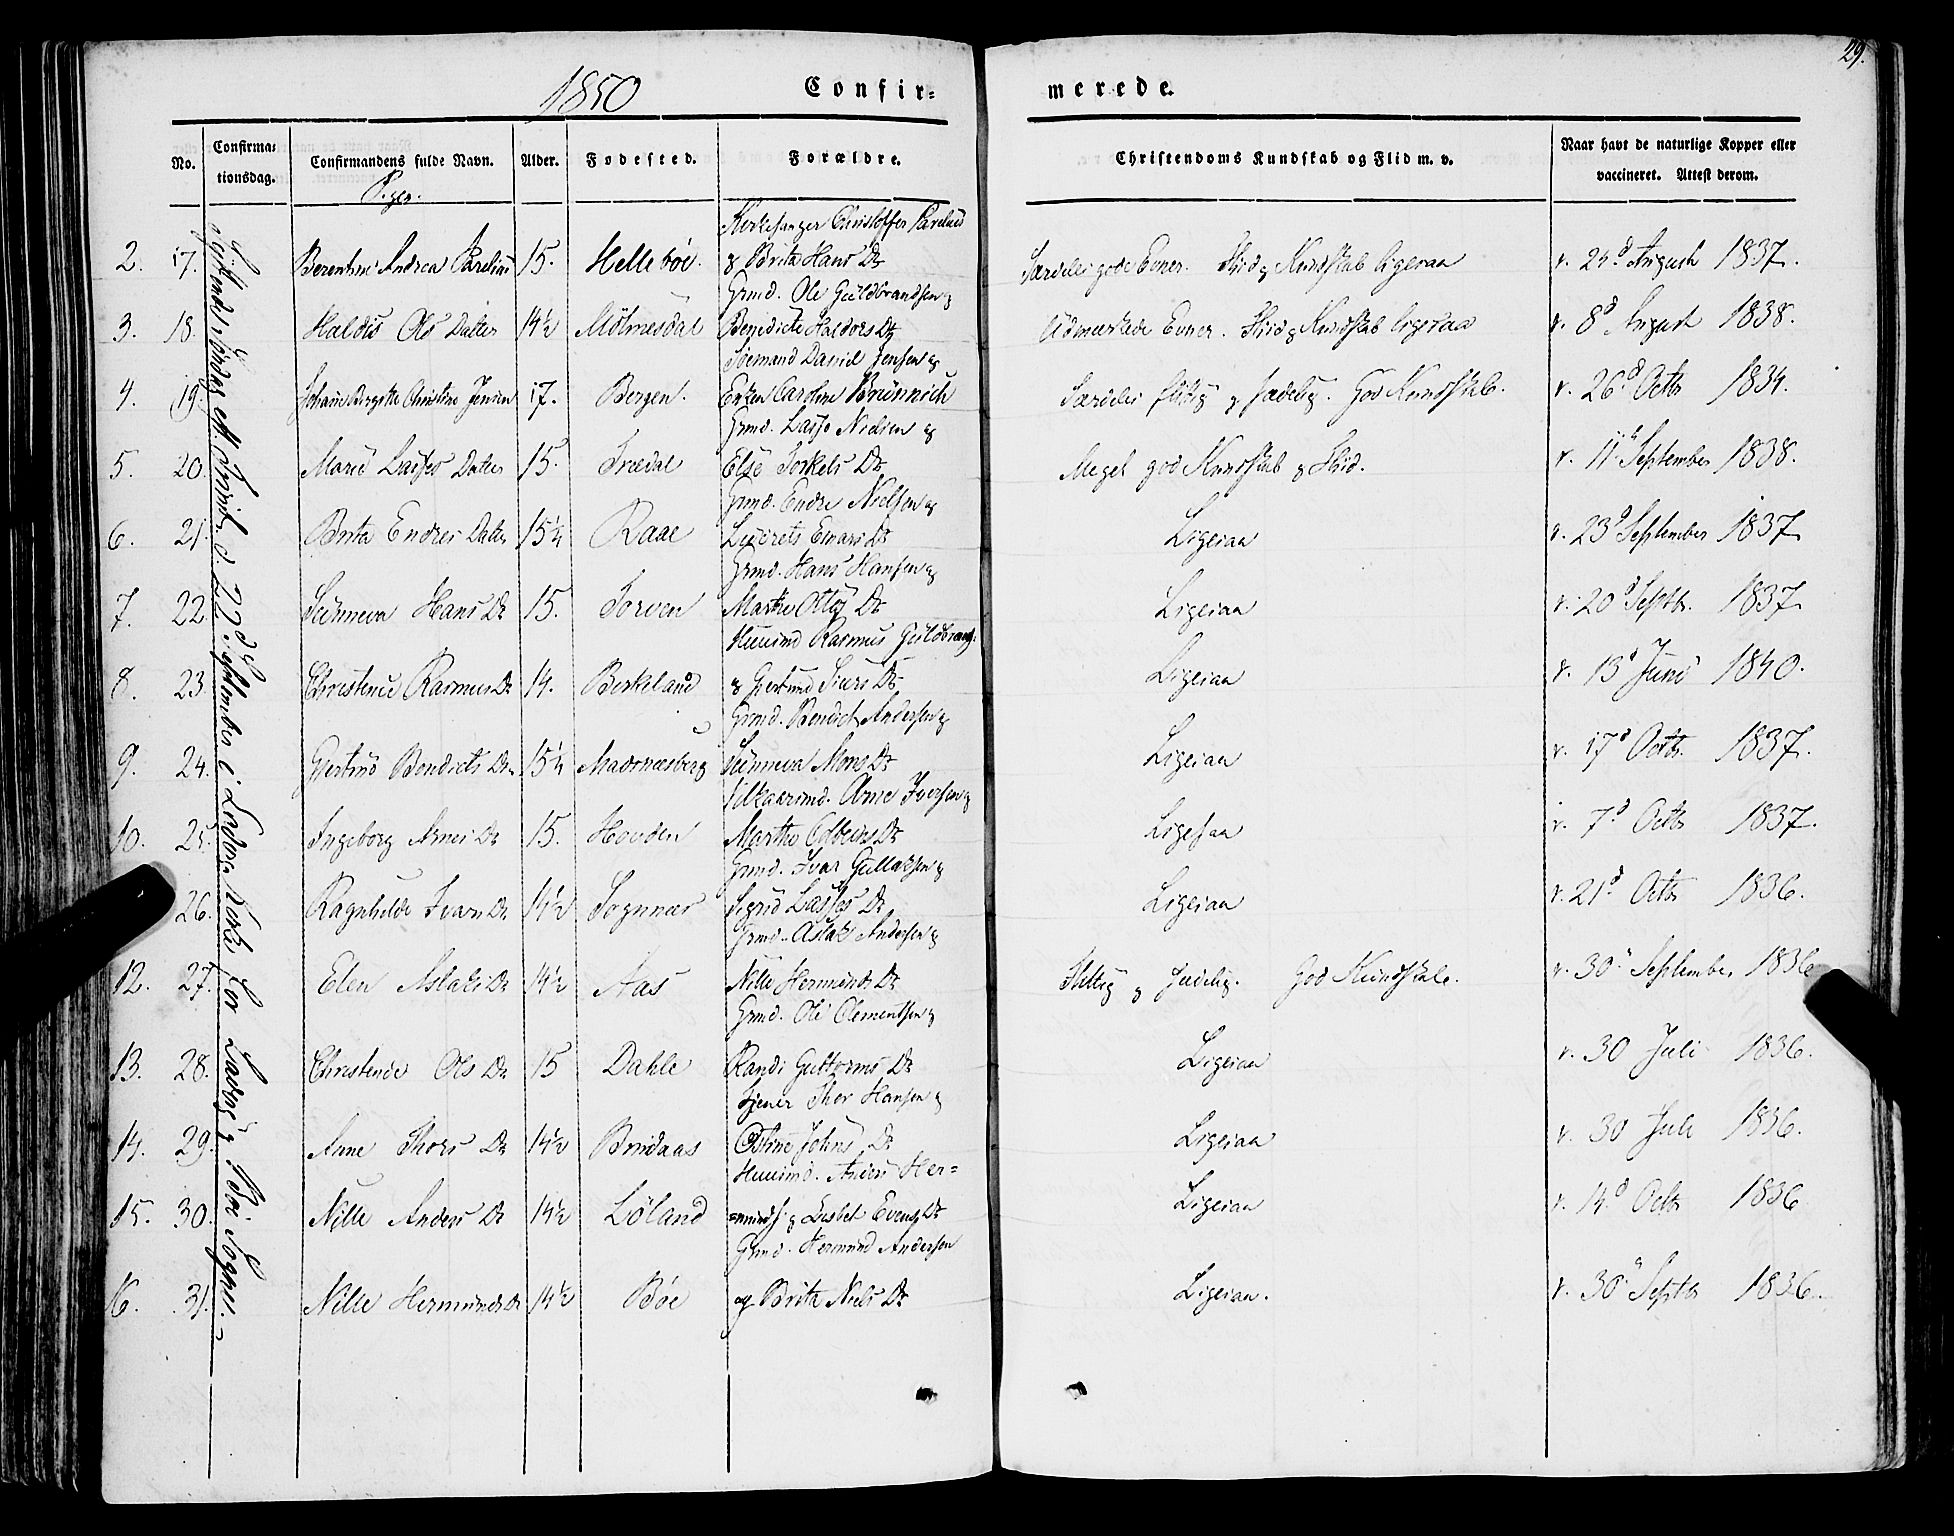 29.
1850 Confir= merede.
No. Confirma=tionsdag. Confirmandens fulde Navn. Alder. Fødested. Forældre. Christendoms Kundskab og Flid m. v. Naar havt de naturlige Kopper eller vaccineret. Attest derom.
Piger.
Kirkesanger Christoffer Parelius
2. 17. Berenthine Andrea Parelius 15. Hellebøe. & Brita Hans Dr Særdeles gode Evner. Flid og Kundskab ligesaa v. 24d August 1837.
Grmd. Ole Guldbrandsen &
3. 18. Haldis Ols Datter 14½ Mølmesdal Benedicte Haldors Dr Udmærkede Evner. Flid og Kundskab ligesaa v. 8d August 1838.
Søemand Daniel Jensen &
4. 19. Johanne Birgitte Christine Jensen 17. Bergen. Caroline Brünnich Særdeles flittig & sædelig. God Kundskab. v. 26d Octbr 1834.
Grmd. Lasse Nielsen &
5. 20. Marie Lasses Datter 15. Else Torkels Dr Meget god Kundskab & Flid. v. 11 September 1838.
Grmd. Endre Nielsen &
6. 21. Brita Endres Datter 15¼ Raae Einars Dr Ligesaa v. 23d September 1837.
Grmd. Hans Hansen &
7. 22. Sünneva Hans Dr 15. Torven Marthe Dr Ligesaa v. 20d Septbr. 1837.
Huusmd Rasmus Guldbrands.
8. 23. Christense Rasmus Dr 14. Birkeland & Gjertrud Siurs Dr Ligesaa v. 13d Juni 1840.
Grmd. Bendict Andersen &
9. 24. Gjertrud Bendicts Dr. 15¼ Sünneva Mons Dr Ligesaa v. 17d Octbr. 1837.
Vilkaarsmd. Arne Iversen &
10. 25. Ingeborg Arnes Dr 15. Hovden Marthe Dr Ligesaa v. 7d Octbr 1837.
Grmd. Ivar Gullaksen &
26. Ragnhilde Ivars Dr 14½ Sognnæs Sigrid Lasses Dr Ligesaa v. 21d Octbr 1836.
Grmd. Aslak Andersen &
12. 27. Elen Aslaks Dr 14½ Aas Nille Hermunds Dr Flittig & sædelig. God Kundskab. v. 30 September 1836
Grmd. Ole Clementsen &
13. 28. Christense Ols Dr 15 Dahle Randi Guttorms Dr Ligesaa v. 30 Juli 1836.
Tjener Thor Hansen &
14. 29. Anne Thors Dr 14½ Johns Dr Ligesaa v. 30 Juli 1836.
Huusmd. Anders Her=
15. 30. Nille Anders Dr 14½ Løland =munds. & Lisbet Evens Dr Ligesaa v. 14d Octbr 1836
Grmd. Hermund Andersen
16. 31. Nille Hermunds Dr 14½ Bøe og Brita Niels Dr Ligesaa. v. 30 Septbr 1836.
Søndag eft. Trinit. d. 22d September i Kirke for Ladvig & Bøe Sogne.